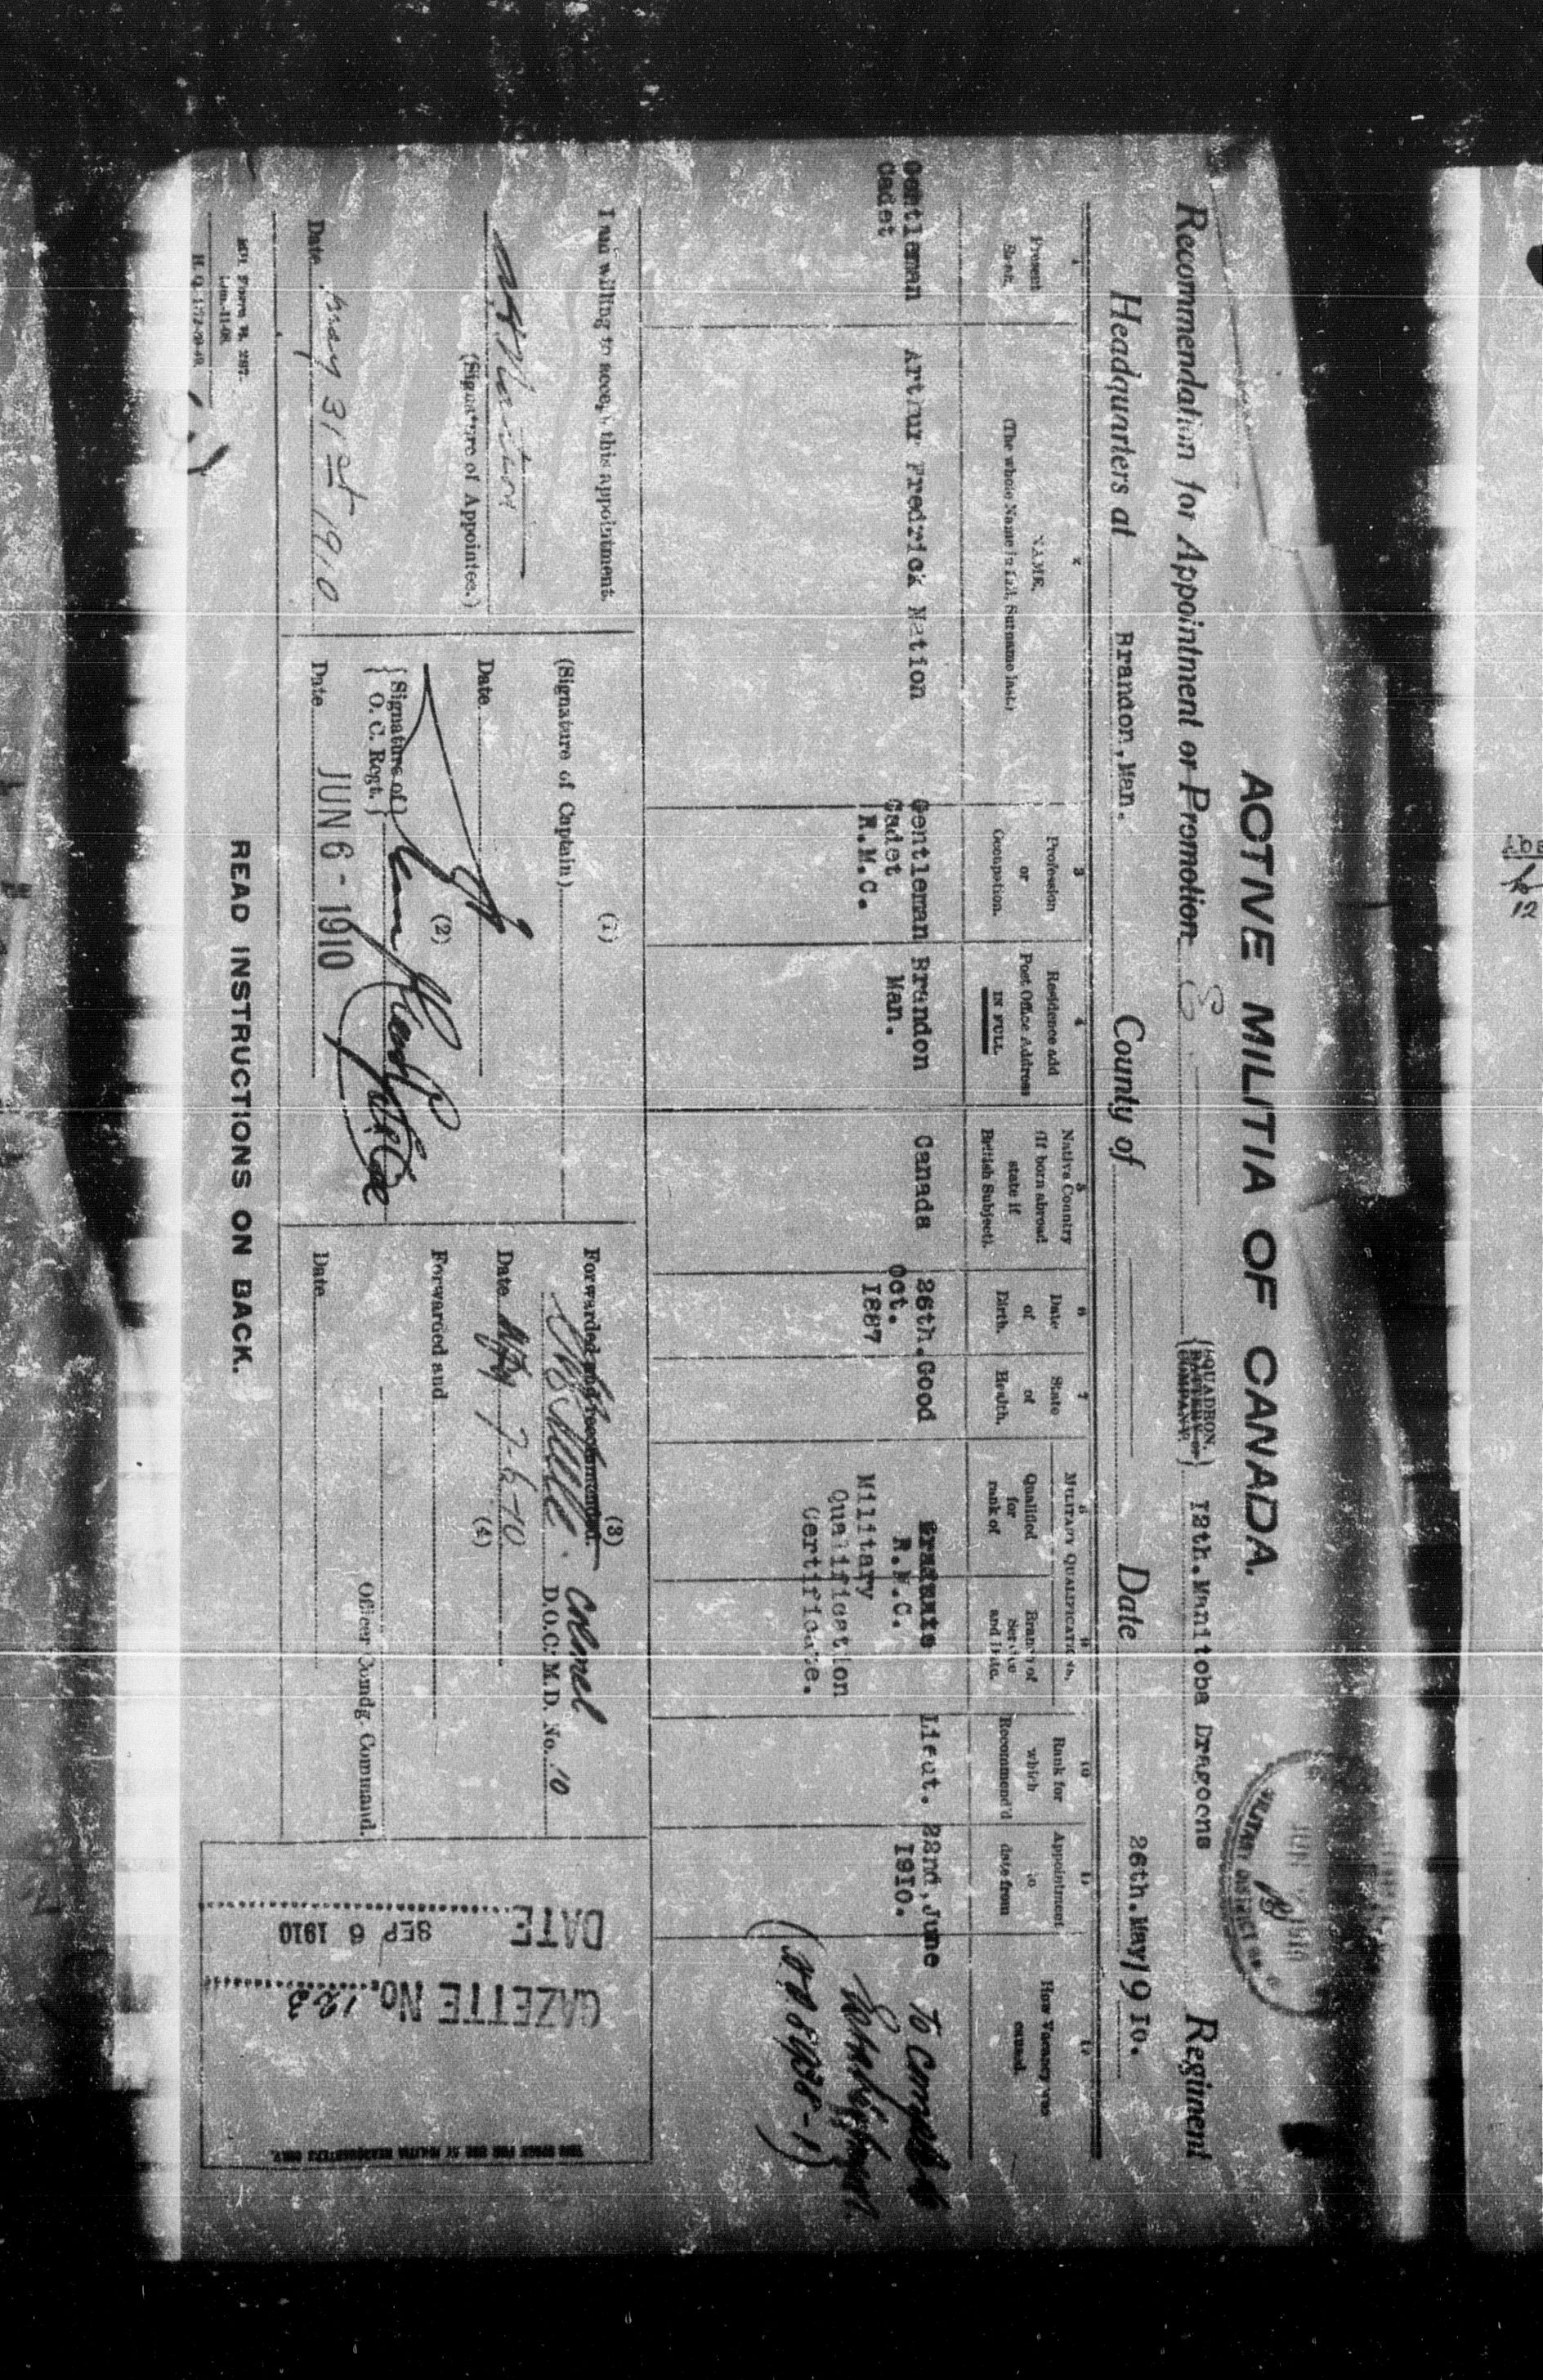 ACTIVE MILITIA OF CANADA.
Recommendation for Appointment or Promotion
{SQUADRON, BATTERY or COMPANY.} 12th. Manitoba Dragoons Regiment
Headquarters at Brandon, Man. County of Date 26th. May 1910.
1
Present Rank.
2
NAME.
(The whole Name in full, Surname last.)
3
Profession or Occupation.
4
Residence add Post Office Address IN FULL.
5
Native Country (If born abroad state if British Subject).
6
Date of Birth.
7
State of Health.
MILITARY QUALIFICATIONS.
8
Qualified for rank of
9
Branch of Service and Date.
10
Rank for which Recommend'd
11
Appointment to date from
12
How Vacancy was caused.
Gentleman Cadet
Arthur Fredrick Nation
Gentleman Cadet R.M.C.
Brandon Man.
Canada
26th. Oct. 1887
Good
Graduate R.M.C. Military Qualification Certificate.
Lieut.
22nd, June 1910.
To complete Establishment.
I am willing to accept this appointment.
(Signature of Appointee.)
Date May 31st 1910
(1)
(Signature of Captain)
Date
(2)
{Signature of O. C. Regt.}
Date JUN 6 - 1910
(3)
Forwarded and recommended.
Colonel
D.O.C. M.D. No. 10
Date 7-6-10
(4)
Forwarded and
Officer Comdg. Command.
Date
GAZETTE No. 123
DATE SEP 6 1910
THIS SPACE FOR USE AT MILITIA HEADQUARTERS ONLY.
READ INSTRUCTIONS ON BACK.
Mil. Form B. 287.
H. Q. 1772-39-49.
MILITARY DISTRICT No.
12